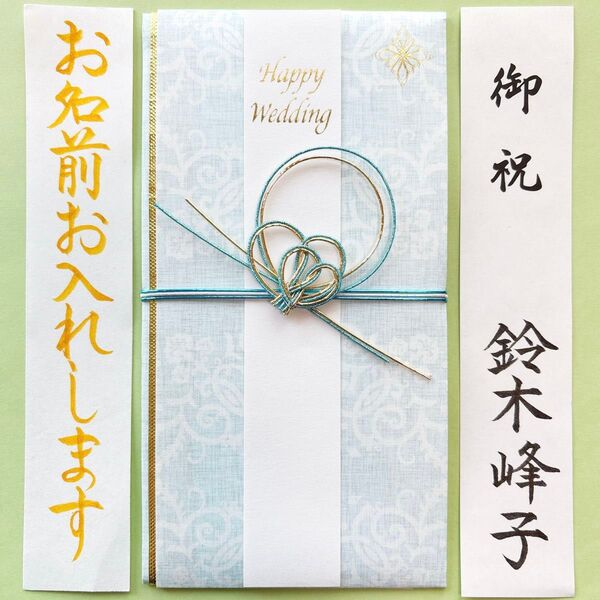 お名前お入れします
Happy
Wedding
御祝
鈴木峰子